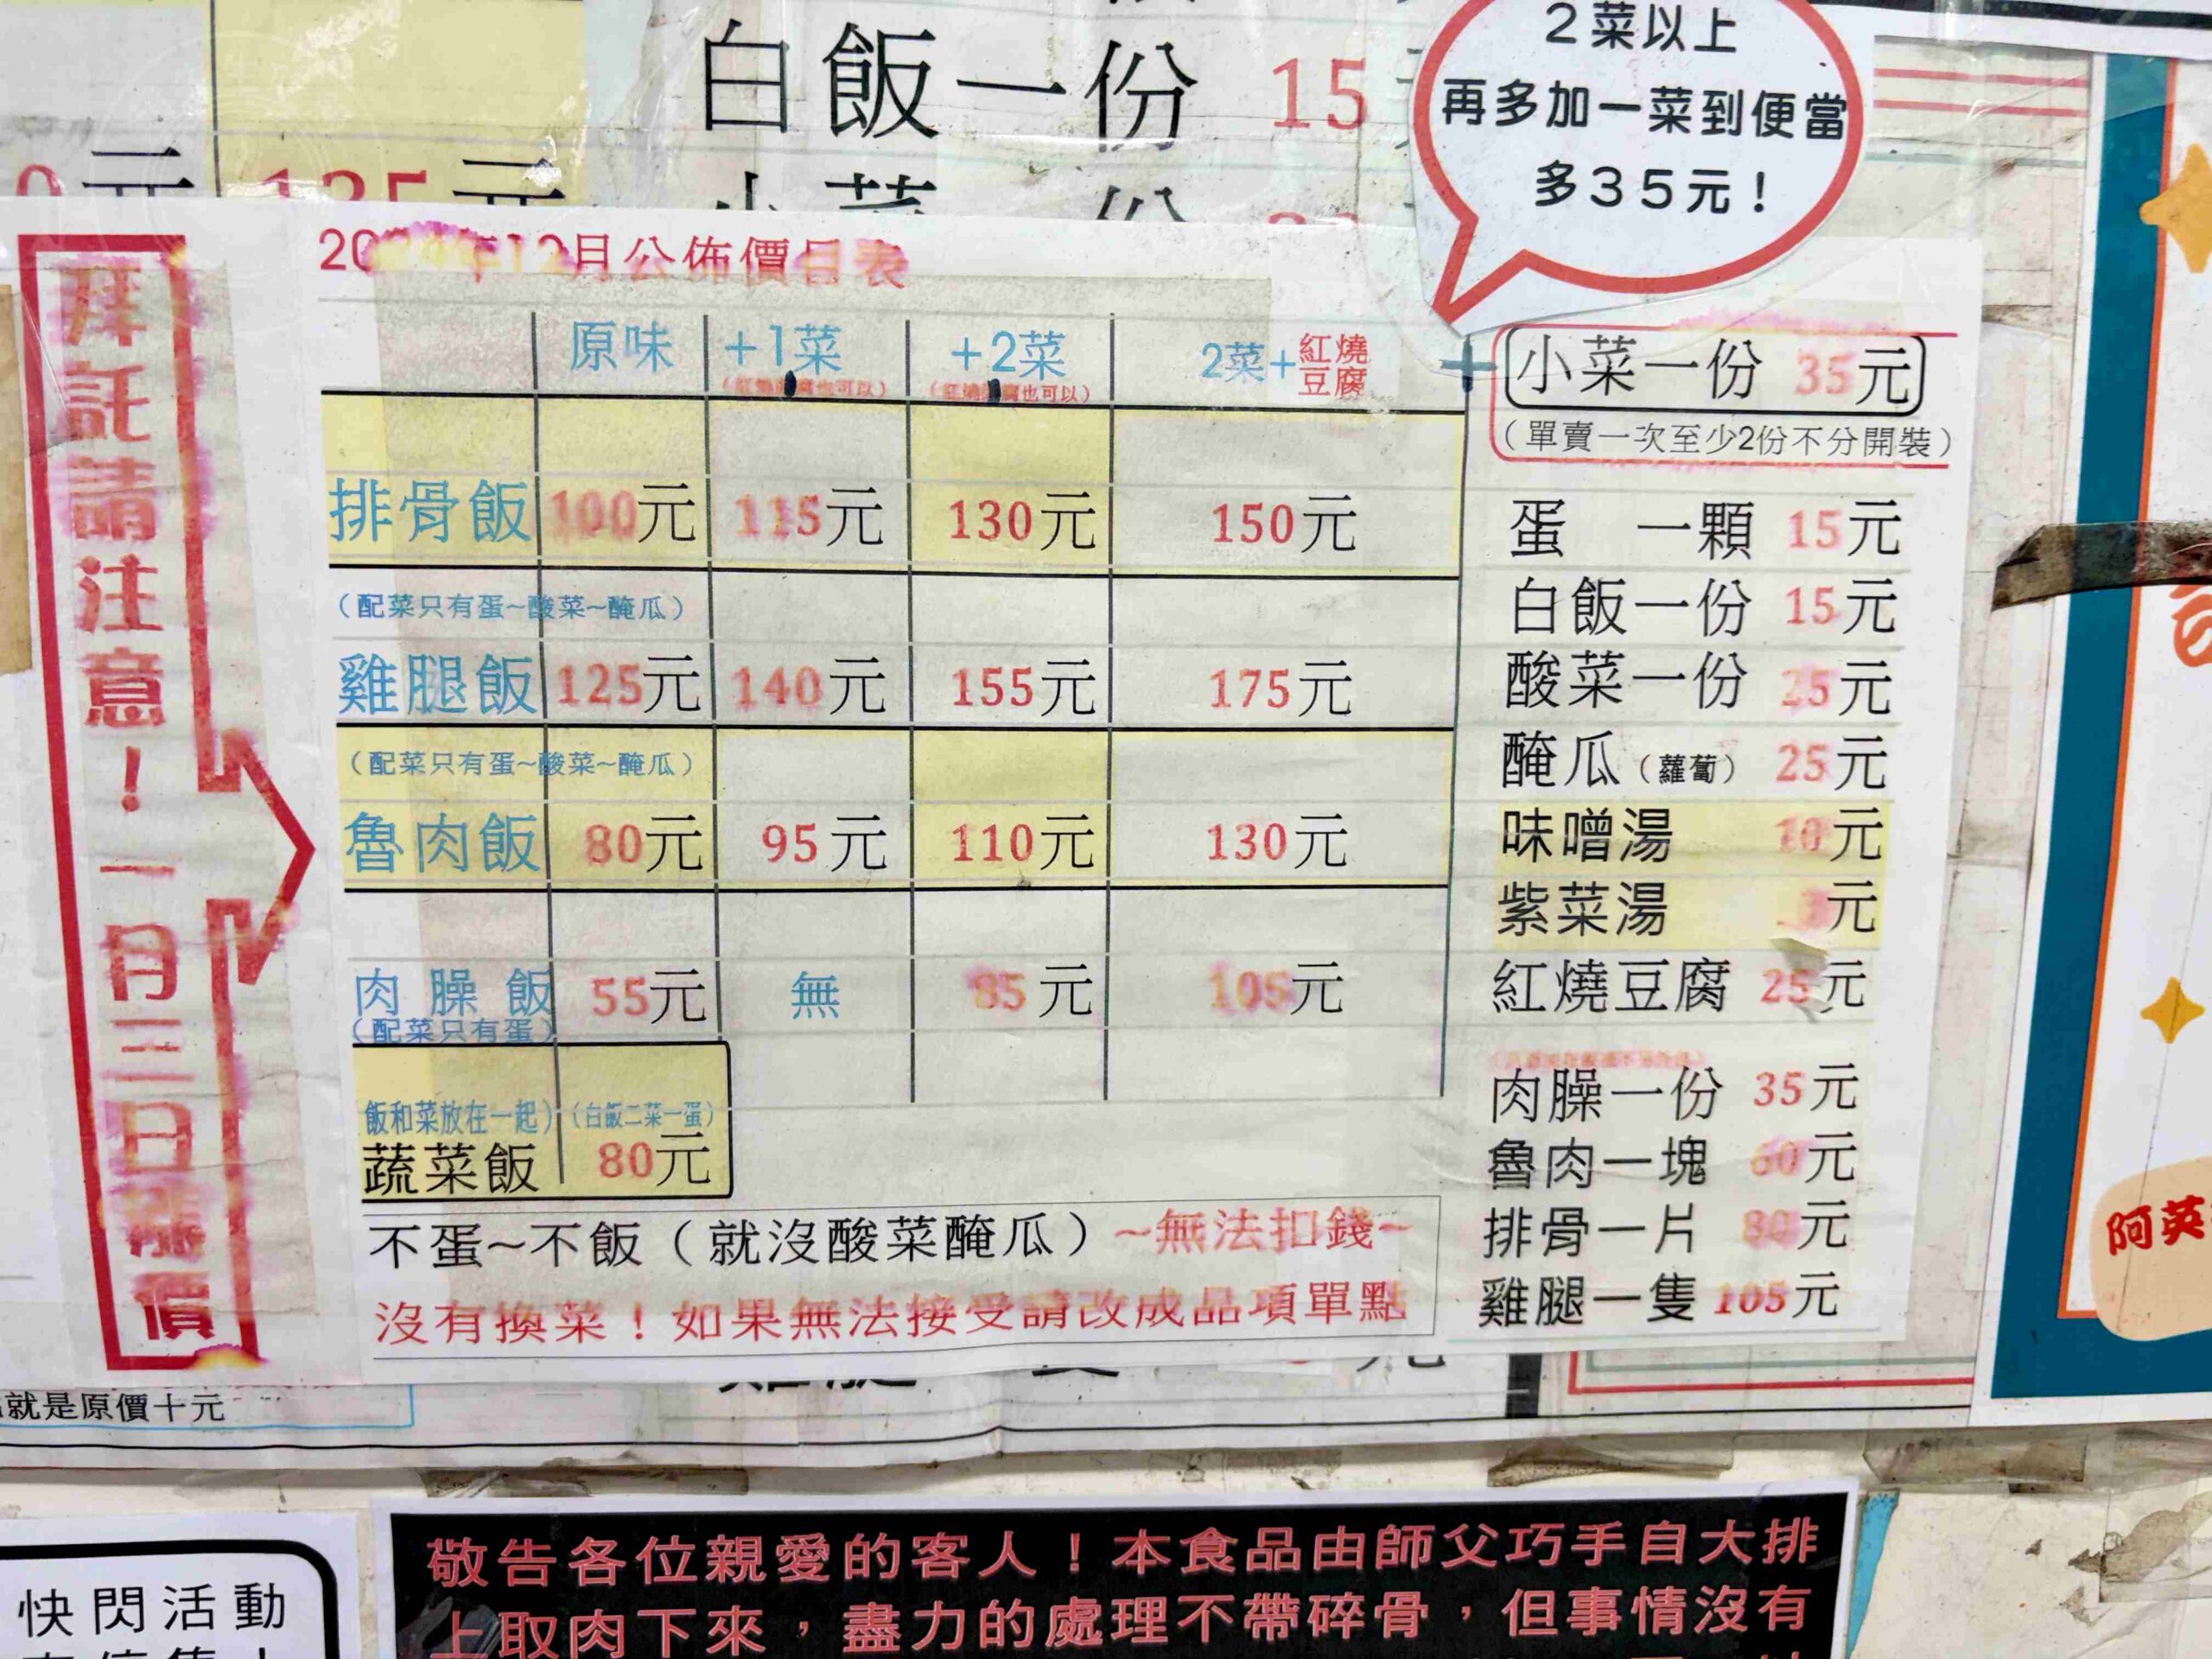 白飯一份 15
2菜以上
再多加一菜到便當
多35元!
135元
拜託請注意!一月三日漲價
2024年12月公佈價目表
原味 +1菜 +2菜 2菜+紅燒豆腐
(紅燒豆腐也可以) (紅燒豆腐也可以)
排骨飯 100元 115元 130元 150元
(配菜只有蛋~酸菜~醃瓜)
雞腿飯 125元 140元 155元 175元
(配菜只有蛋~酸菜~醃瓜)
魯肉飯 80元 95元 110元 130元
肉臊飯 55元 無 85元 105元
(配菜只有蛋)
飯和菜放在一起) (白飯二菜一蛋)
蔬菜飯 80元
不蛋~不飯(就沒酸菜醃瓜)~無法扣錢~
沒有換菜!如果無法接受請改成品項單點
+ 小菜一份 35元
(單賣一次至少2份不分開裝)
蛋 一顆 15元
白飯一份 15元
酸菜一份 25元
醃瓜(蘿蔔) 25元
味噌湯 10元
紫菜湯 元
紅燒豆腐 25元
肉臊一份 35元
魯肉一塊 60元
排骨一片 80元
雞腿一隻 105元
就是原價十元
阿英
快閃活動
敬告各位親愛的客人!本食品由師父巧手自大排
上取肉下來,盡力的處理不帶碎骨,但事情沒有